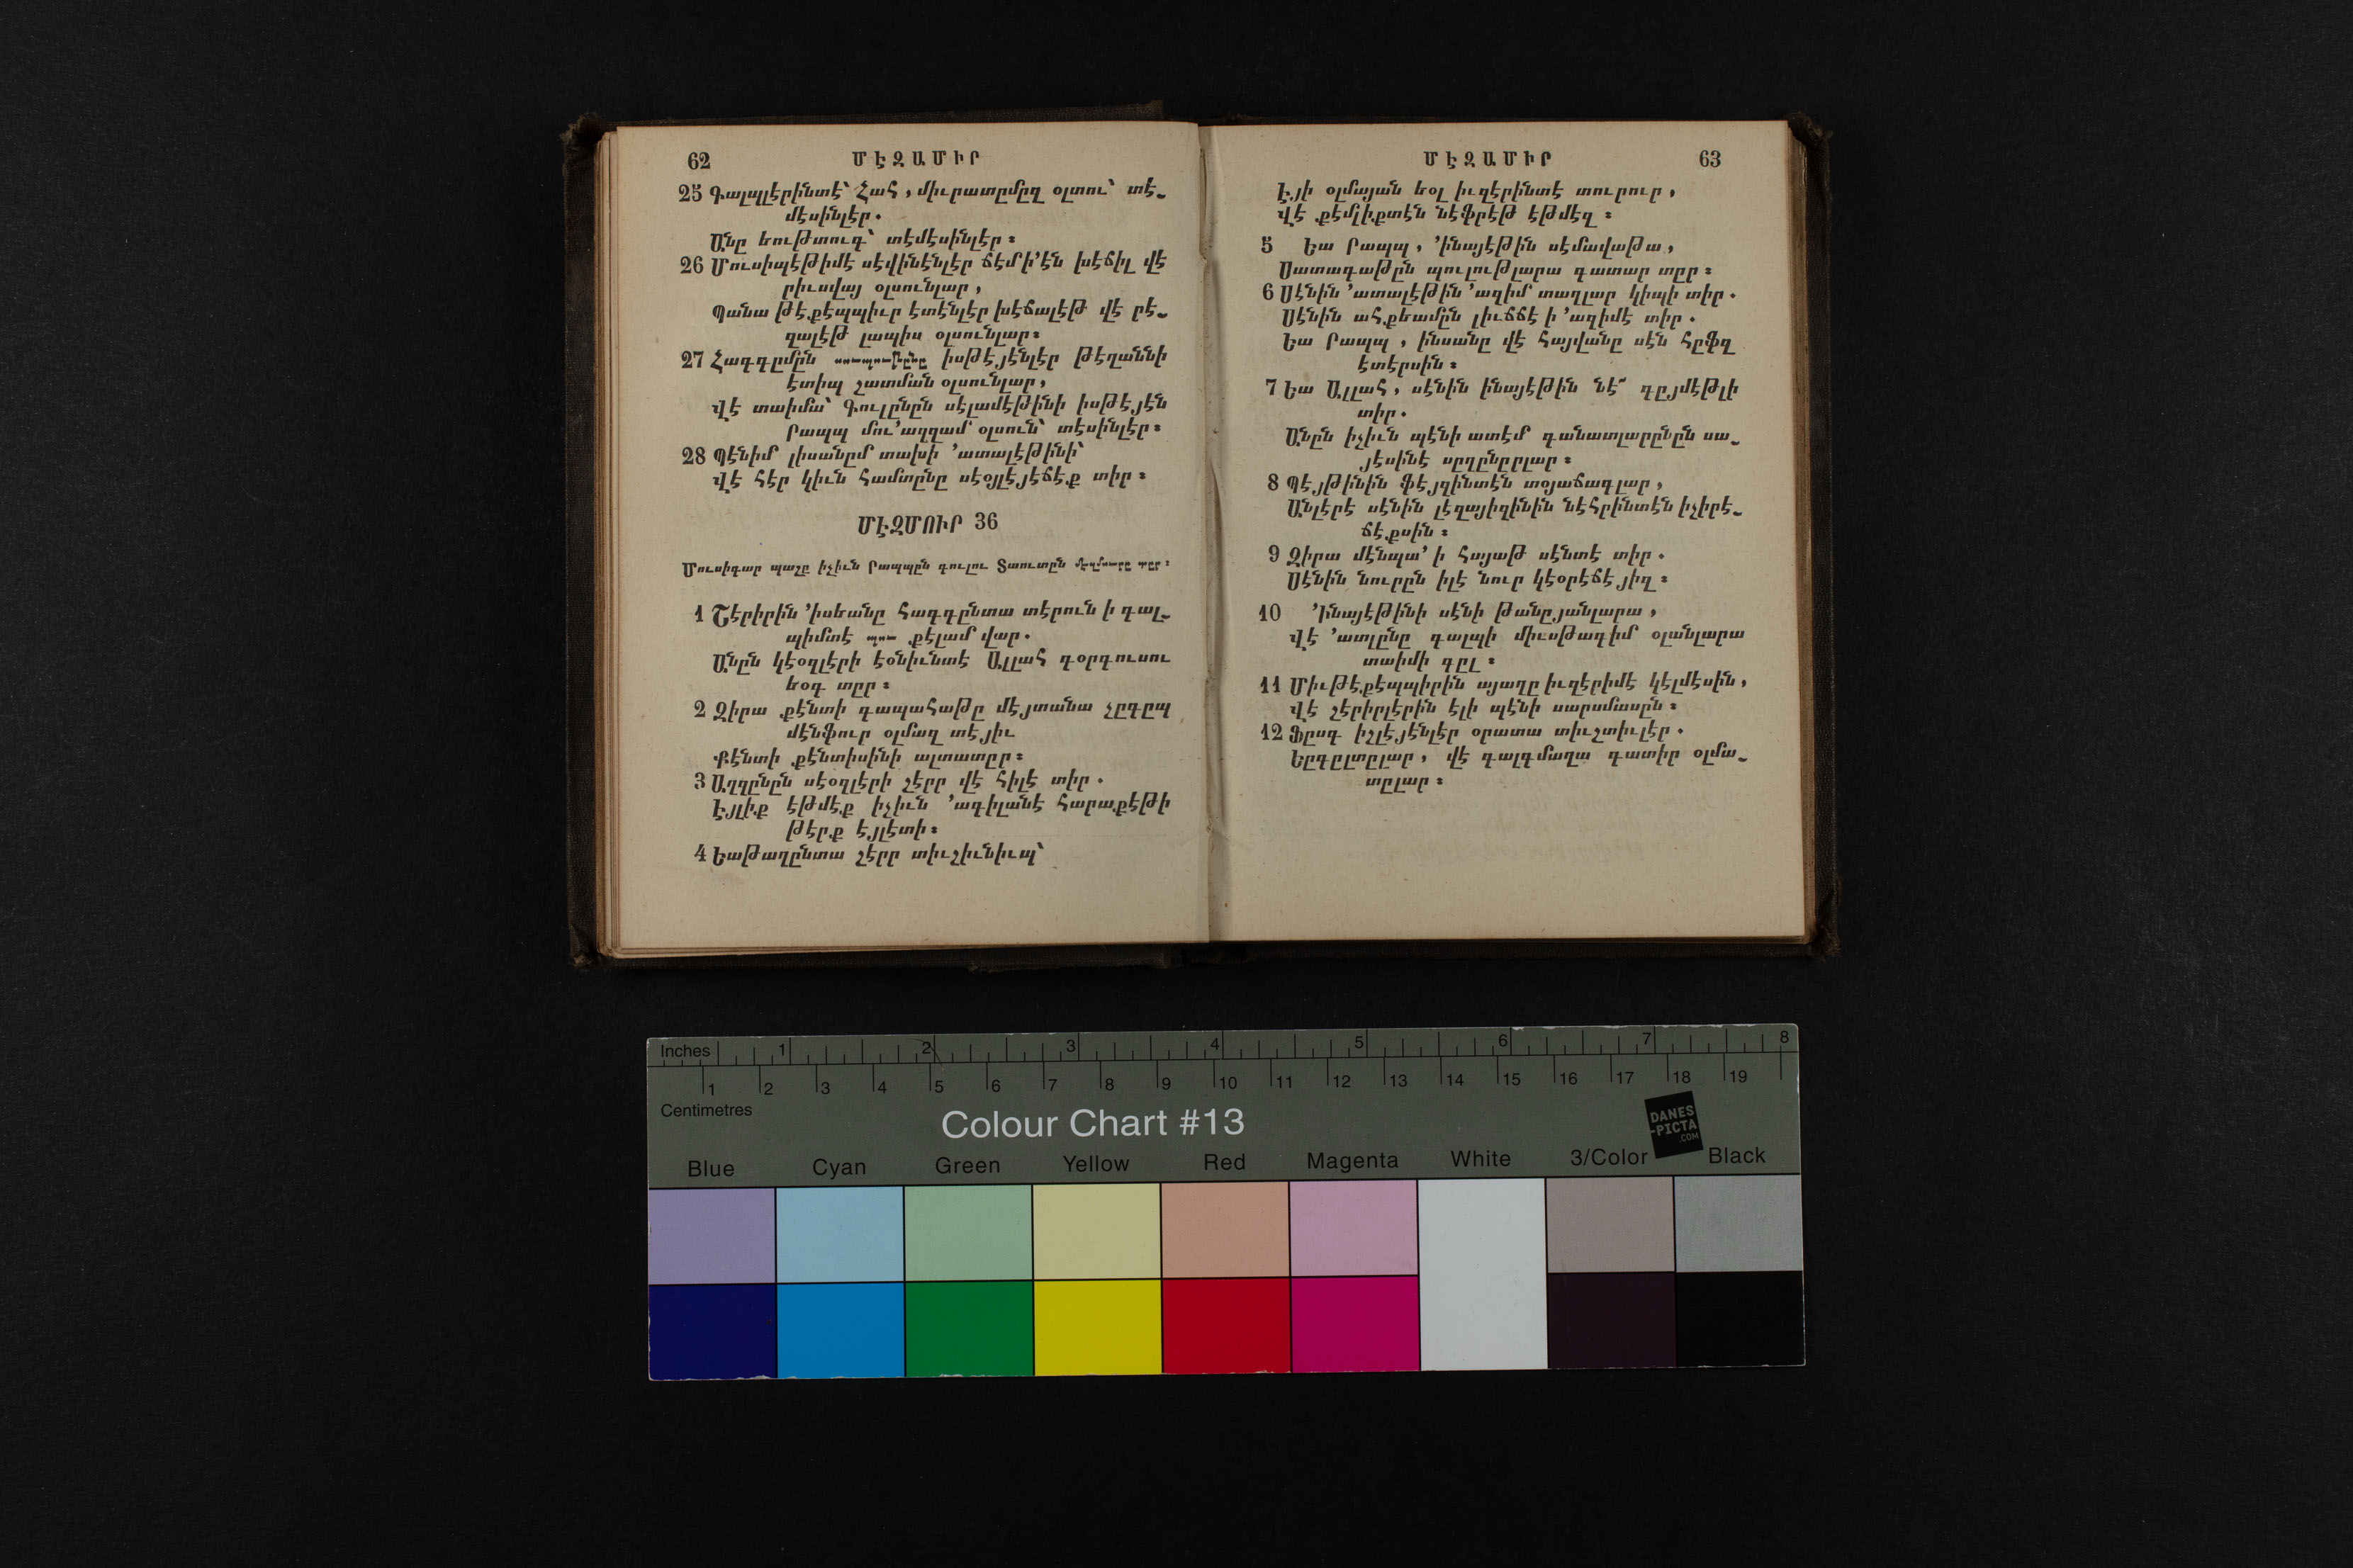 62 ՄԷԶԱՄԻՐ
25 Գալպլէրինտէ՝ Հահ, միւրատըմըզ օլտու՝ տէ֊
մէսինլէր.
Անը եութտուգ՝ տէմէսինլէր։
26 Մուսիպէթիմէ սէվինէնլէր ճէմի՚էն խէճիլ վէ
րիւսվայ օլսունլար,
Պանա թէքէպպիւր էտէնլէր խէճալէթ վէ րէ֊
զալէթ լապիս օլսունլար։
27 Հագգըմըն իսթէյէնլէր թէղաննի
էտիպ շատման օլսունլար,
Վէ տաիմա՝ Գուլընըն սէլամէթինի իսթէյէն
Րապպ մու՚ազզամ օլսուն՝ տէսինլէր։
28 Պէնիմ լիսանըմ տախի ՚ատալէթինի՝
Վէ հէր կիւն համտընը սէօյլէյէճէք տիր։
ՄԷԶՄՈՒՐ 36
Մուսիգար պաշը իչիւն Րապպըն գուլու Տաուտըն մէզմուրը տըր։
1 Շէրիրին ՚իսեանը հագգընտա տէրուն ի գալ֊
պիմտէ պու քէլամ վար.
Անըն կէօզլէրի էօնիւնտէ Ալլահ գօրգուսու
եօգ տըր։
2 Զիրա քէնտի գապահաթը մէյտանա չըգըպ
մէնֆուր օլմազ տէյիւ
Քէնտի քէնտիսինի ալտատըր։
3 Աղզընըն սէօզլէրի շէրր վէ հիլէ տիր.
Էյլիք էթմէք իչիւն ՚ագիլանէ հարաքէթի
թէրք էյլէտի։
4 Եաթաղընտա շէրր տիւշիւնիւպ՝
ՄԷԶԱՄԻՐ 63
Էյի օլմայան եօլ իւզէրինտէ տուրուր,
Վէ քէմլիքտէն նէֆրէթ էթմէզ։
5 Եա Րապպ, ՚ինայէթին սէմավաթա,
Սատագաթըն պուլութլարա գատար տըր։
6 Սէնին ՚ատալէթին ՚ազիմ տաղլար կիպի տիր.
Սէնին ահքեամըն լիւճճէ ի ՚ազիմէ տիր.
Եա Րապպ, ինսանը վէ հայվանը սէն հըֆզ
էտէրսին։
7 Եա Ալլահ, սէնին ինայէթին նէ՜ գըյմէթլի
տիր.
Անըն իչիւն պէնի ատէմ գանատլարընըն սա֊
յէսինէ սըղընըրլար։
8 Պէյթինին ֆէյզինտէն տօյաճագլար,
Անլէրէ սէնին լէզայիզինին նէհրինտէն իչիրէ֊
ճէքսին։
9 Զիրա մէնպա՚ ի հայաթ սէնտէ տիր.
Սէնին նուրըն իլէ նուր կէօրէճէյիզ։
10 ՚Ինայէթինի սէնի թանըյանլարա,
Վէ ՚ատլընը գալպի միւսթագիմ օլանլարա
տաիմի գըլ։
11 Միւթէքէպպիրին այաղը իւզէրիմէ կէլմէսին,
Վէ շէրիրլէրին էլի պէնի սարսմասըն։
12 Ֆըսգ իշլէյէնլէր օրատա տիւշտիւլէր.
Եըգըլտըլար, վէ գալգմաղա գատիր օլմա֊
տըլար։
Inches 1 2 3 4 5 6 7 8
1 2 3 4 5 6 7 8 9 10 11 12 13 14 15 16 17 18 19
Centimetres
Colour Chart #13
DANES
-PICTA
.COM
Blue Cyan Green Yellow Red Magenta White 3/Color Black